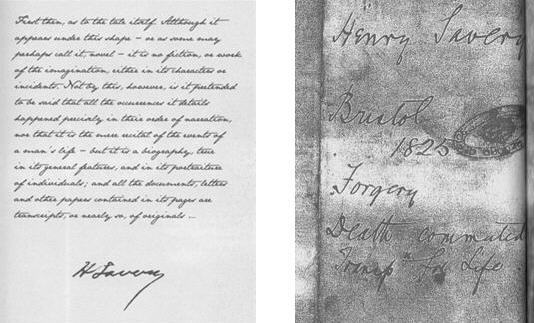 First then, as to the tale itself. Although it
appears under this shape – or as some may
perhaps call it, novel – it is no fiction, or work
of the imagination, either in its characters or
incidents. Not by this, however, is it pretended
to be said that all the occurences it details
happened precisely in their order of narration,
nor that it is the mere recital of the events of
a man's life – but it is a biography, true
in its general features, and in its portraiture
of individuals; and all the documents, letters
and other papers contained in its pages are
transcripts, or nearly so, of originals ...
H Savery
Henry Savery
Bristol
1825
Forgery
Death commuted
Transp<sup>n</sup> for Life.